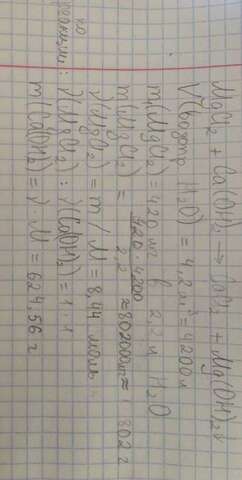 MgCl2 + Ca(OH)2 → CaCl2 + Mg(OH)2↓
V(водопр H2O) = 4,2 м³ = 4200 л
m1(MgCl2) = 420 мг в 2,2 л H2O
m(MgCl2) = 420 · 4200 / 2,2 ≈ 802000 мг ≈ 802 г
ν(MgCl2) = m / M = 8,44 моль
по
реакции: ν(MgCl2) : ν(Ca(OH)2) = 1 : 1
m(Ca(OH)2) = ν · M = 624,56 г